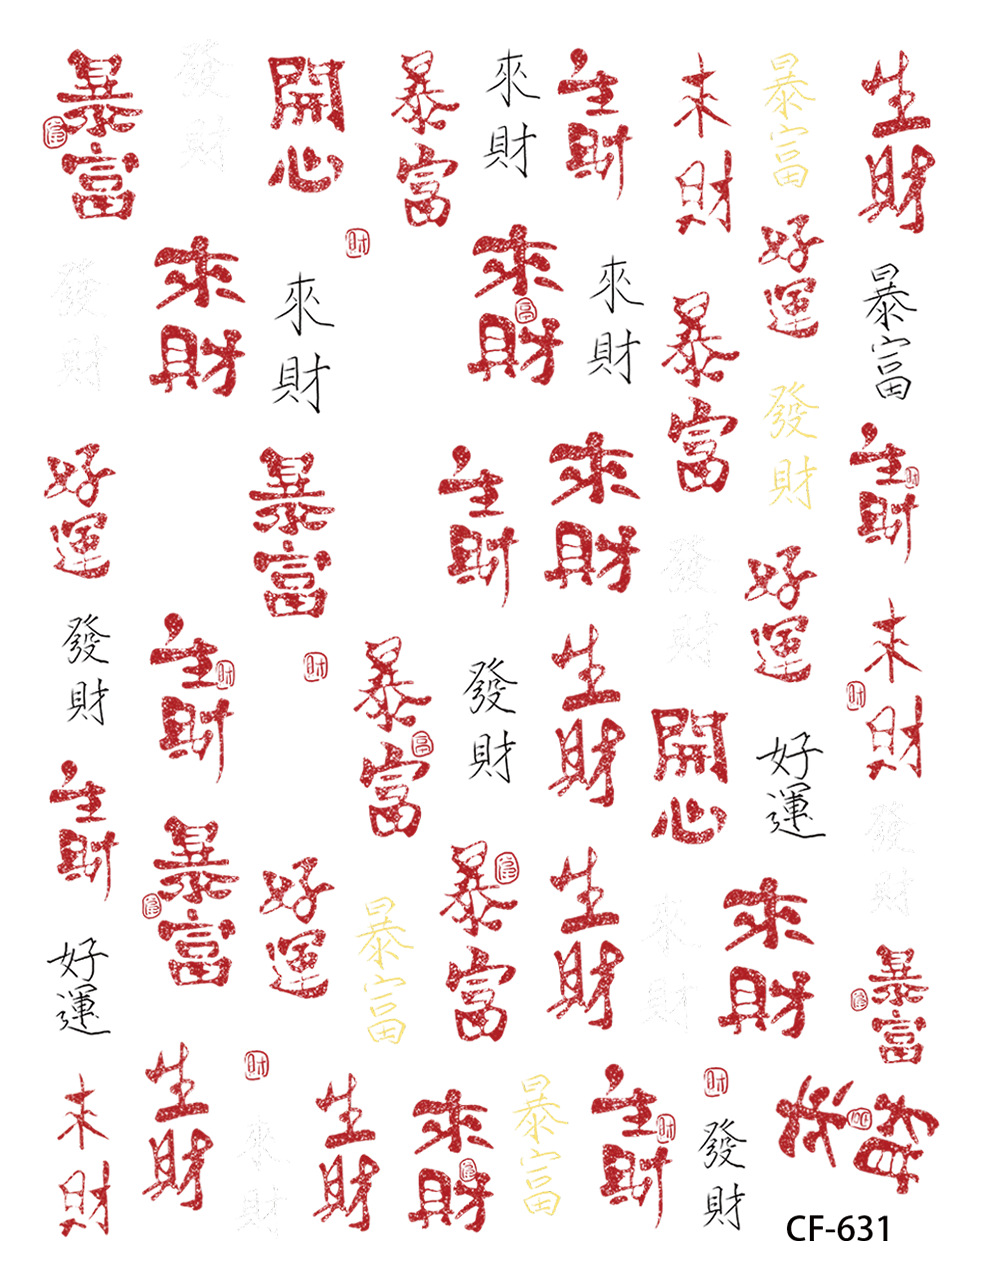 暴富
發財
開心
暴富
來財
生財
來財
暴富
生財
發財
來財
財
來財
來財
富
來財
暴富
好運
暴富
發財
好運
暴富
生財
來財
發財
生財
財
好運
發財
生財
財
財
暴富
富
發財
生財
開心
好運
來財
財
發財
生財
暴富
好運
暴富
暴富
生財
來財
來財
好運
暴富
來財
生財
財
來財
生財
來財
暴富
生財
財
財
發財
來財
財
CF-631